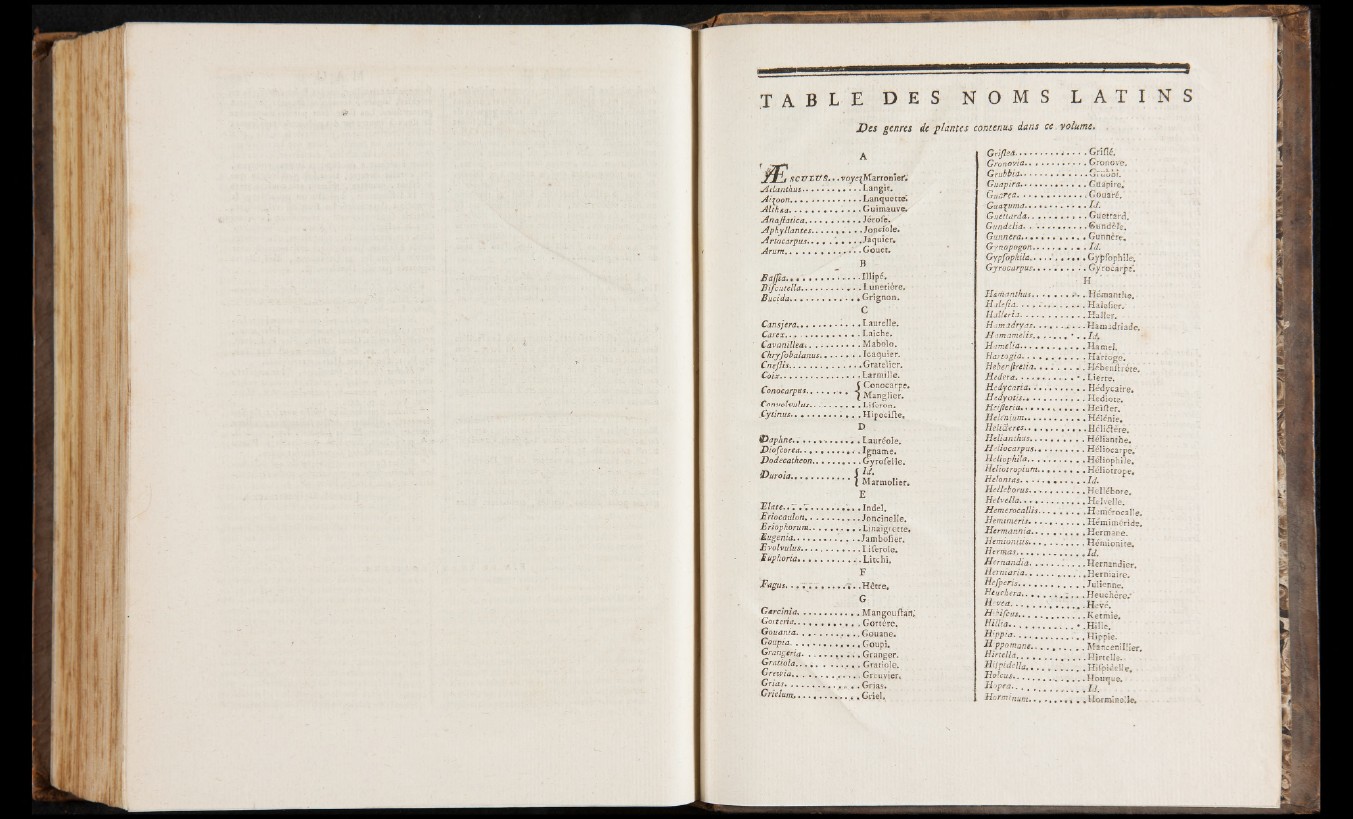 TABLE DES NOMS LATINS
Des genres de plantes contenus dans ce volume.
A
ÆSCULUS...voyezMarronier.
Ailanthus............Langit.
Aizoon............Lanquette.
Althæa............Guimauve.
Anastatica............Jérose.
Aphyllantes............Jonciole.
Artocarpus............Jaquier.
Arum............Gouet.
B
Bassia............Illipé.
Biscutella............Lunetière.
Bucida............Grignon.
C
Cansjera............Laurelle.
Carex............Laiche.
Cavanillea............Mabolo.
Chrysobalanus............Icaquier.
Cnestis............Gratelier.
Coix............Larmille.
Conocarpus............{ Conocarpe.
Manglier.
Convolvulus............Liseron.
Cytinus............Hipociste.
D
Daphne............Lauréole.
Dioscorea............Igname.
Dodecatheon............Gyroselle.
Duroia............{ Id.
Marmolier.
E
Elate............Indel.
Eriocaulon............Joncinelle.
Eriophorum............Linaigrette.
Eugenia............Jambosier.
Evolvulus............Liserole.
Euphoria............Litchi.
F
Fagus............Hêtre.
G
Garcinia............Mangoustan.
Gorteria............Gortère.
Gouania............Gouane.
Goupia............Goupi.
Grangeria............Granger.
Gratiola............Gratiole.
Grewia............Greuvier.
Grias............Grias.
Grielum............Griel.
Grislea............Grislé.
Gronovia............Gronove.
Grubbia............Grubbi.
Guapira............Guapire.
Guarea............Gouaré.
Guazuma............Id.
Guettarda............Guettard.
Gundelia............Gundèle.
Gunnera............Gunnère.
Gynopogon............Id.
Gypsophila............Gypsophile.
Gyrocarpus............Gyrocarpe.
H
Hæmanthus............Hémanthe.
Halesia............Halesier.
Halleria............Haller.
Hamadryas............Hamadriade.
Hamamelis............Id.
Hamelia............Hamel.
Hartogia............Hartoge.
Hebenstretia............Hébenstrète.
Hedera............Lierre.
Hedycaria............Hédycaire.
Hedyotis............Hédiote.
Heisteria............Heister.
Helenium............Hélénie.
Helicteres............Hélictère.
Helianthus............Hélianthe.
Heliocarpus............Héliocarpe.
Heliophila............Héliophile.
Heliotropium............Héliotrope.
Helonias............Id.
Helleborus............Hellébore.
Helvella............Helvelle.
Hemerocallis............Hémérocalle.
Hemimeris............Hémiméride.
Hermannia............Hermane.
Hemionitis............Hémionite.
Hermas............Id.
Hernandia............Hernandier.
Herniaria............Herniaire.
Hesperis............Julienne.
Heuchera............Heuchère.
Hevea............Hevé.
Hibiscus............Ketmie.
Hillia............Hillie.
Hippia............Hippie.
Hippomane............Mancenillier.
Hirtella............Hirtelle.
Hispidella............Hispidelle.
Holcus............Houque.
Hopea............Id.
Horminum............Horminelle.